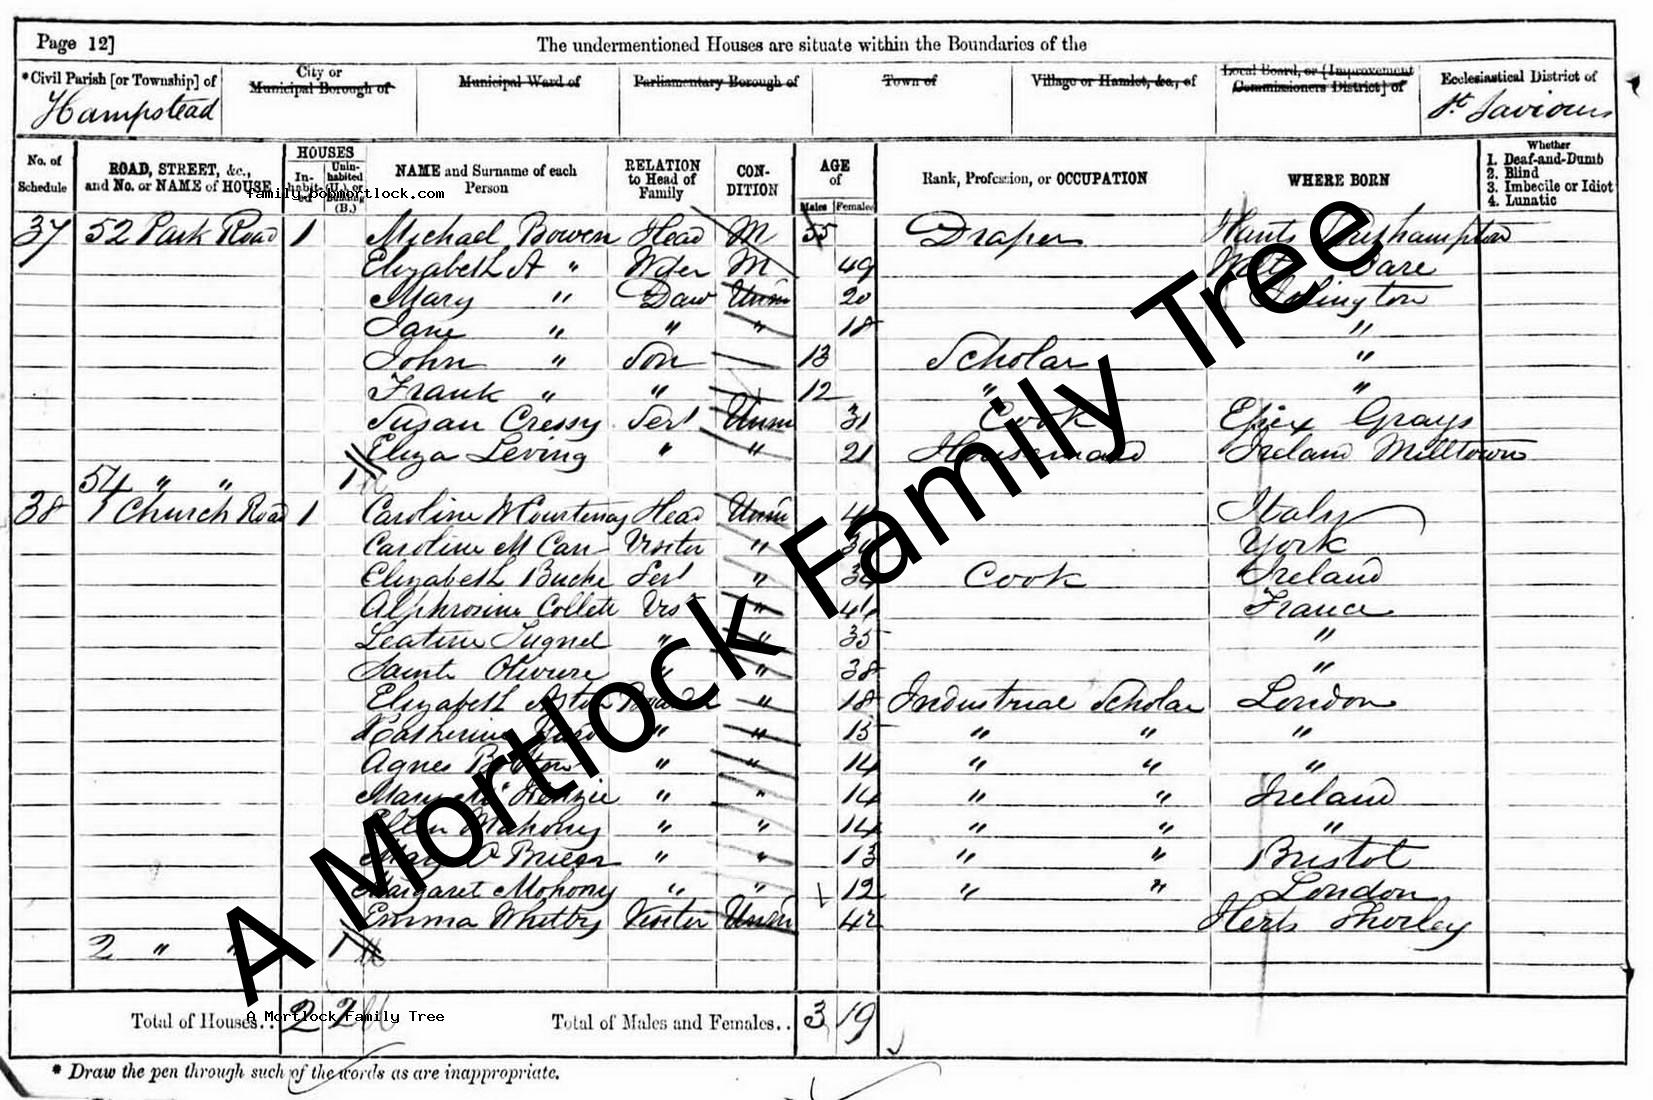 Page 12]
The undermentioned Houses are situate within the Boundaries of the
*Civil Parish [or Township] of
Hampstead
City or
Municipal Borough of
Municipal Ward of
Parliamentary Borough of
Town of
Village or Hamlet, &c., of
Local Board, or [Improvement
Commissioners District] of
Ecclesiastical District of
St Saviours
No. of
Schedule
ROAD, STREET, &c.,
and No. or NAME of HOUSE
HOUSES
In-
habit-
Unin-
habited
(U.), or
(B.)
NAME and Surname of each
Person
RELATION
to Head of
Family
CON-
DITION
AGE
of
Males Females
Rank, Profession, or OCCUPATION
WHERE BORN
Whether
1. Deaf-and-Dumb
2. Blind
3. Imbecile or Idiot
4. Lunatic
family.bobmortlock.com
37 52 Park Road 1 Michael Bowen Head M 55 Draper Hants
Elizabeth A " M 49
Mary " Daur Unm 20 Islington
Jane " " " 18 "
John " Son 13 Scholar "
Frank " " 12 " "
Susan Cressy Sert Unm 31 Cook Essex Grays
Eliza Leving " " 21 Housemaid Ireland Milltown
54 " " 1
38 1 Church Road 1 Caroline W Courtenay Head Unm Italy
Caroline M Carr Visitor " York
Elizabeth Sert " Cook Ireland
Collett Vist " France
" " 35 "
" " 38 "
Elizabeth " 18 Industrial Scholar London
Catherine " " 15 " " "
Agnes " " 14 " " "
Mary Mc Kenzie " " 14 " " Ireland
Ellen Mahony " " 14 " " "
Mary O Brien " " 13 " " Bristol
Margaret Mohony " " 12 " " London
Emma Whitby Visitor Unm 42 Herts Thorley
2 " " 1
Total of Houses.. 2 2
Total of Males and Females.. 3 19
A Mortlock Family Tree
* Draw the pen through such of the words as are inappropriate.
A Mortlock Family Tree